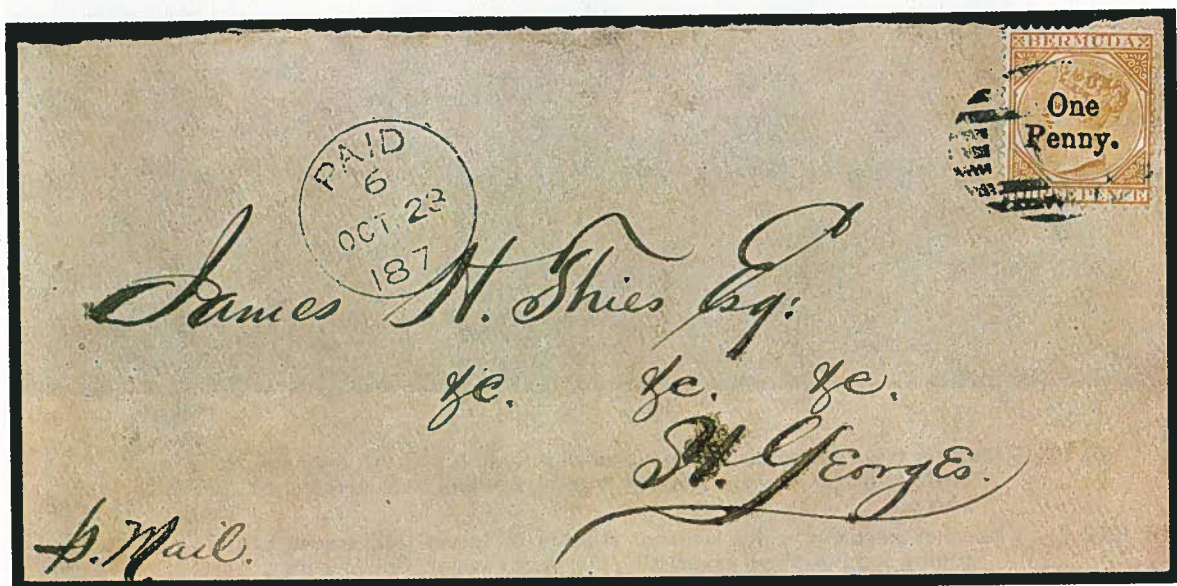 BERMUDA
One
Penny.
THREE PENCE
PAID
6
OCT. 23
187
James H. Thies Esq:
&c. &c. &c.
St. Georges.
p. Mail.